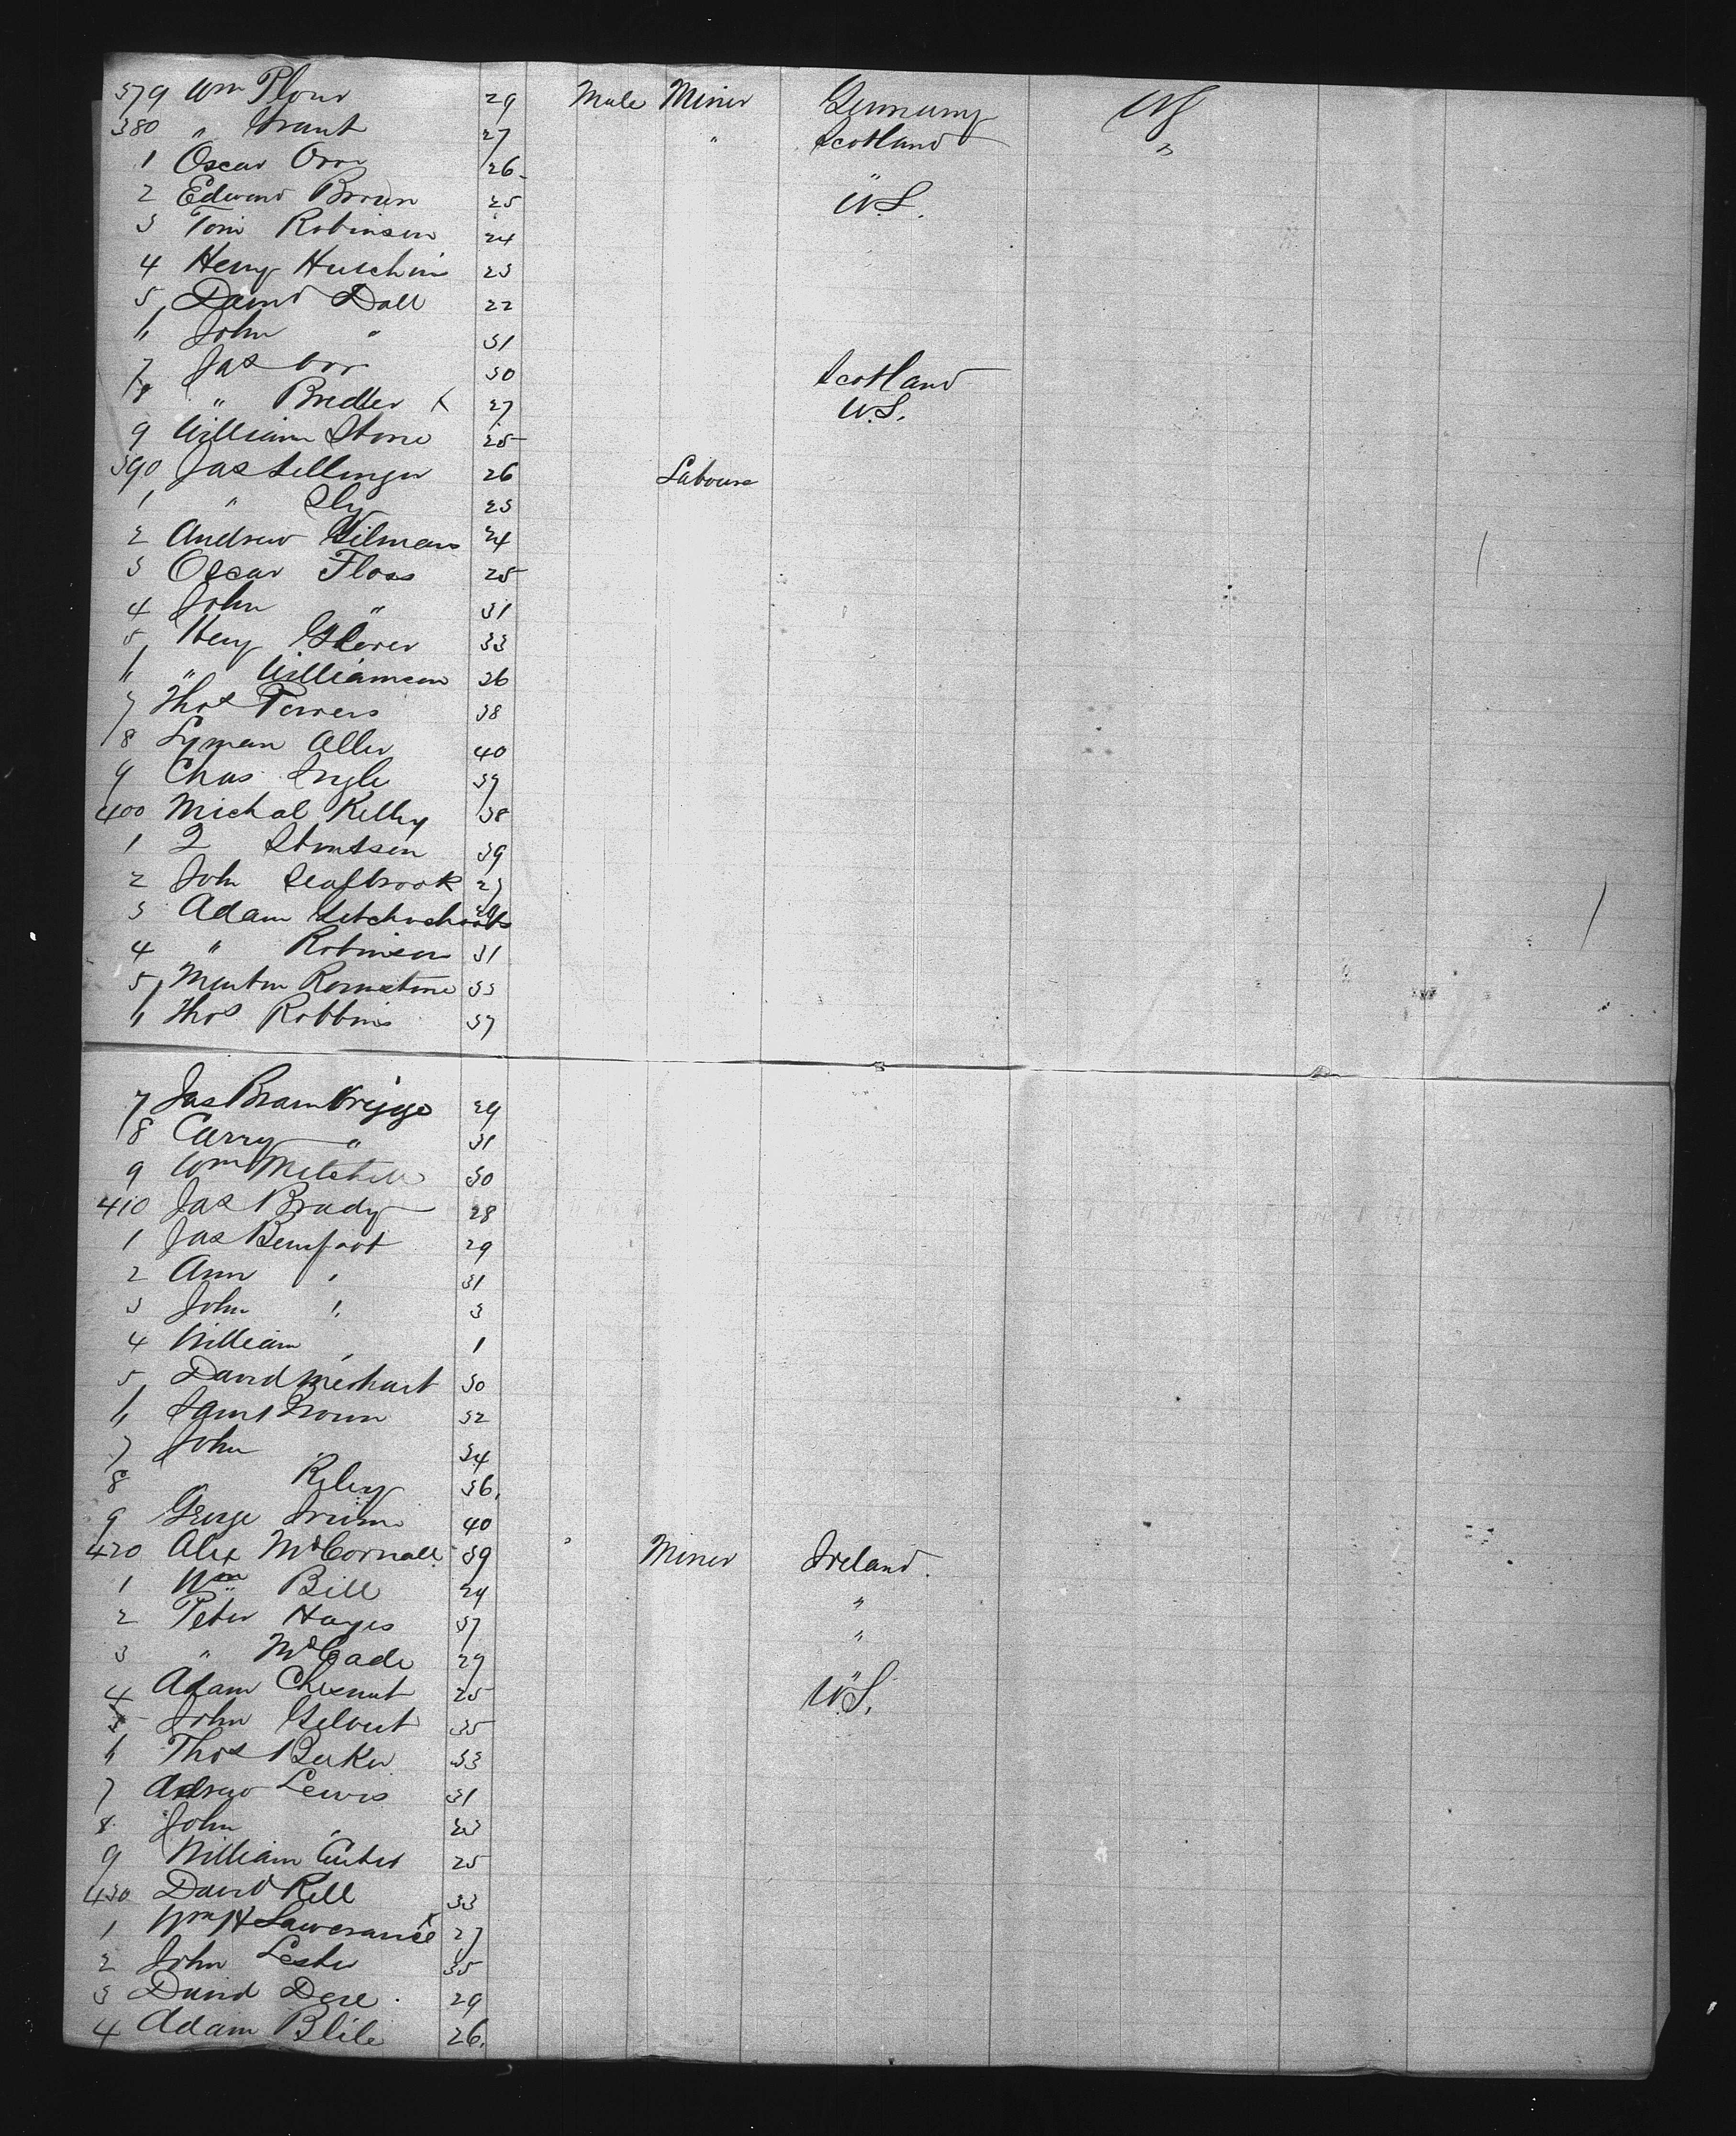 379 Wm Plour 29 Male Miner Germany US
380 " Grant 27 " Scotland "
1 Oscar Orr 26 "
2 Edward Brown 25 U.S.
3 Tom Robinson 24
4 Henry Hutchins 23
5 David Dall 22
6 John " 31
7 Jas Orr 30 Scotland
8 " Bredler X 27 U.S.
9 William Stone 25
390 Jas Sellinger 26 Labourer
1 " Sly 23
2 Andrew Gilman 24
3 Oscar Floss 25
4 John " 31
5 Henry Glover 33
6 " Williamson 36
7 Thos Powers 38
8 Lyman Aller 40
9 Chas Ingle 39
400 Michal Kelley 38
1 Stimtson 39
2 John Seafbrook 27
3 Adam 29
4 " Robinson 31
5 Martin 33
6 Thos Robbins 37
7 Jas Brambrigge 29
8 Carry " 31
9 Wm Mitchell 30
410 Jas Brady 28
1 Jas Benfoot 29
2 Ann " 31
3 John " 3
4 William " 1
5 David 30
6 32
7 John 34
8 Riley 36
9 George 40
420 Alex McCornall 39 " Miner Ireland
1 Wm Bill 24 "
2 Peter Hayes 37 "
3 " McCade 29 "
4 Adam Chesnut 25 U.S.
5 John Gilbert 35
6 Thos Baker 33
7 Adrew Lewis 31
8 John " 23
9 William 25
430 David Kell 33
1 Wm H Lawerance X 27
2 John Lester 35
3 David Dere 29
4 Adam Blile 26